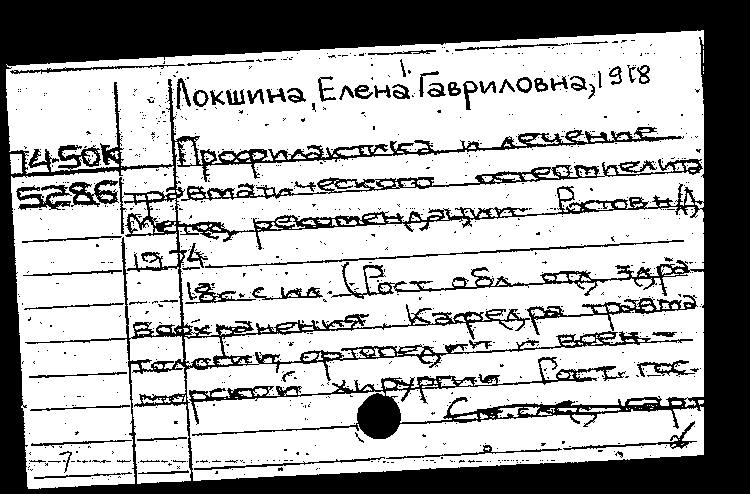 Локшина, Елена Гавриловна, 1918
74-50К Профилактика и лечение
5286 травматического остеомиелита
Метод. рекомендации. Ростов н/Д,
1974.
18с. с ил. (Рост. обл. отд. здра-
воохранения. Кафедра травма
тологии, ортопедии и воен.-
морской хирургии Рост. гос.
См. след. карт
7